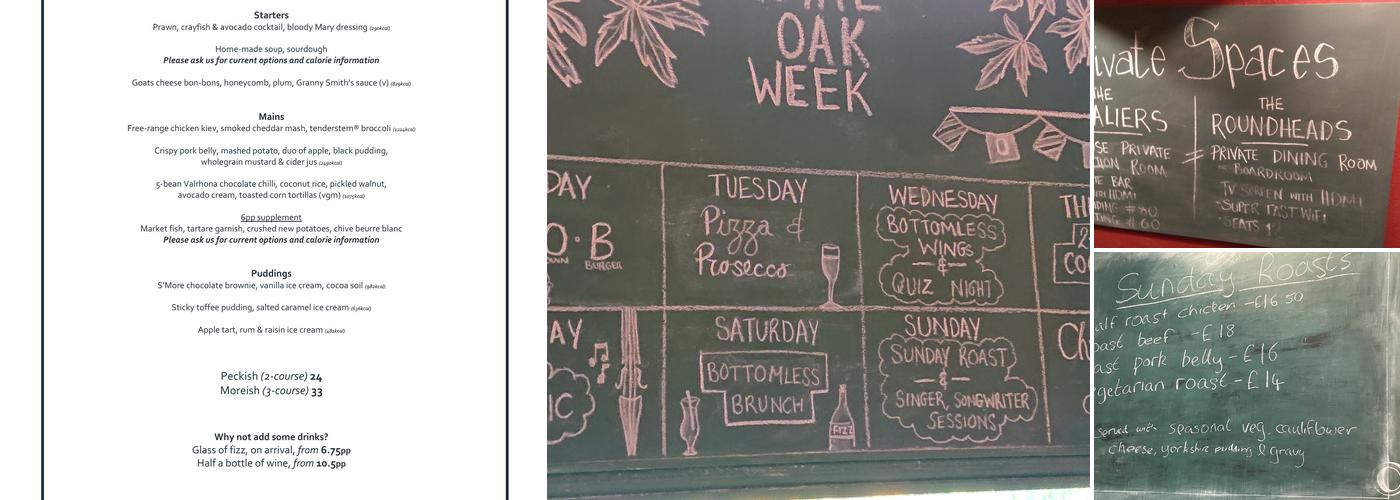 Starters
Prawn, crayfish & avocado cocktail, bloody Mary dressing (290kcal)
Home-made soup, sourdough
Please ask us for current options and calorie information
Goats cheese bon-bons, honeycomb, plum, Granny Smith's sauce (v) (829kcal)
Mains
Free-range chicken kiev, smoked cheddar mash, tenderstem® broccoli (1224kcal)
Crispy pork belly, mashed potato, duo of apple, black pudding,
wholegrain mustard & cider jus
5-bean Valrhona chocolate chilli, coconut rice, pickled walnut,
avocado cream, toasted corn tortillas (vgm) (1075kcal)
6pp supplement
Market fish, tartare garnish, crushed new potatoes, chive beurre blanc
Please ask us for current options and calorie information
Puddings
S'More chocolate brownie, vanilla ice cream, cocoa soil (982kcal)
Sticky toffee pudding, salted caramel ice cream (636kcal)
Apple tart, rum & raisin ice cream (482kcal)
Peckish (2-course) 24
Moreish (3-course) 33
Why not add some drinks?
Glass of fizz, on arrival, from 6.75pp
Half a bottle of wine, from 10.5pp
OAK
WEEK
DAY
TUESDAY
Pizza &
Prosecco
WEDNESDAY
BOTTOMLESS
WINGS
&
QUIZ NIGHT
TH
O·B
BURGER
CO
AY
IC
SATURDAY
BOTTOMLESS
BRUNCH
FIZZ
SUNDAY
SUNDAY ROAST
&
SINGER, SONGWRITER
SESSIONS
Ch
ivate Spaces
THE
ALIERS
SE PRIVATE
TION ROOM
TE BAR
ITH HDMI
DING # 80
TING # 60
THE
ROUNDHEADS
PRIVATE DINING ROOM
- BOARDROOM
TV SCREEN WITH HDMI
- SUPER FAST WIFI
- SEATS
Sunday Roasts
alf roast chicken - £16.50
oast beef - £18
ast pork belly - £16
getarian roast - £14
served with seasonal veg. cauliflower
cheese, yorkshire pudding & gravy